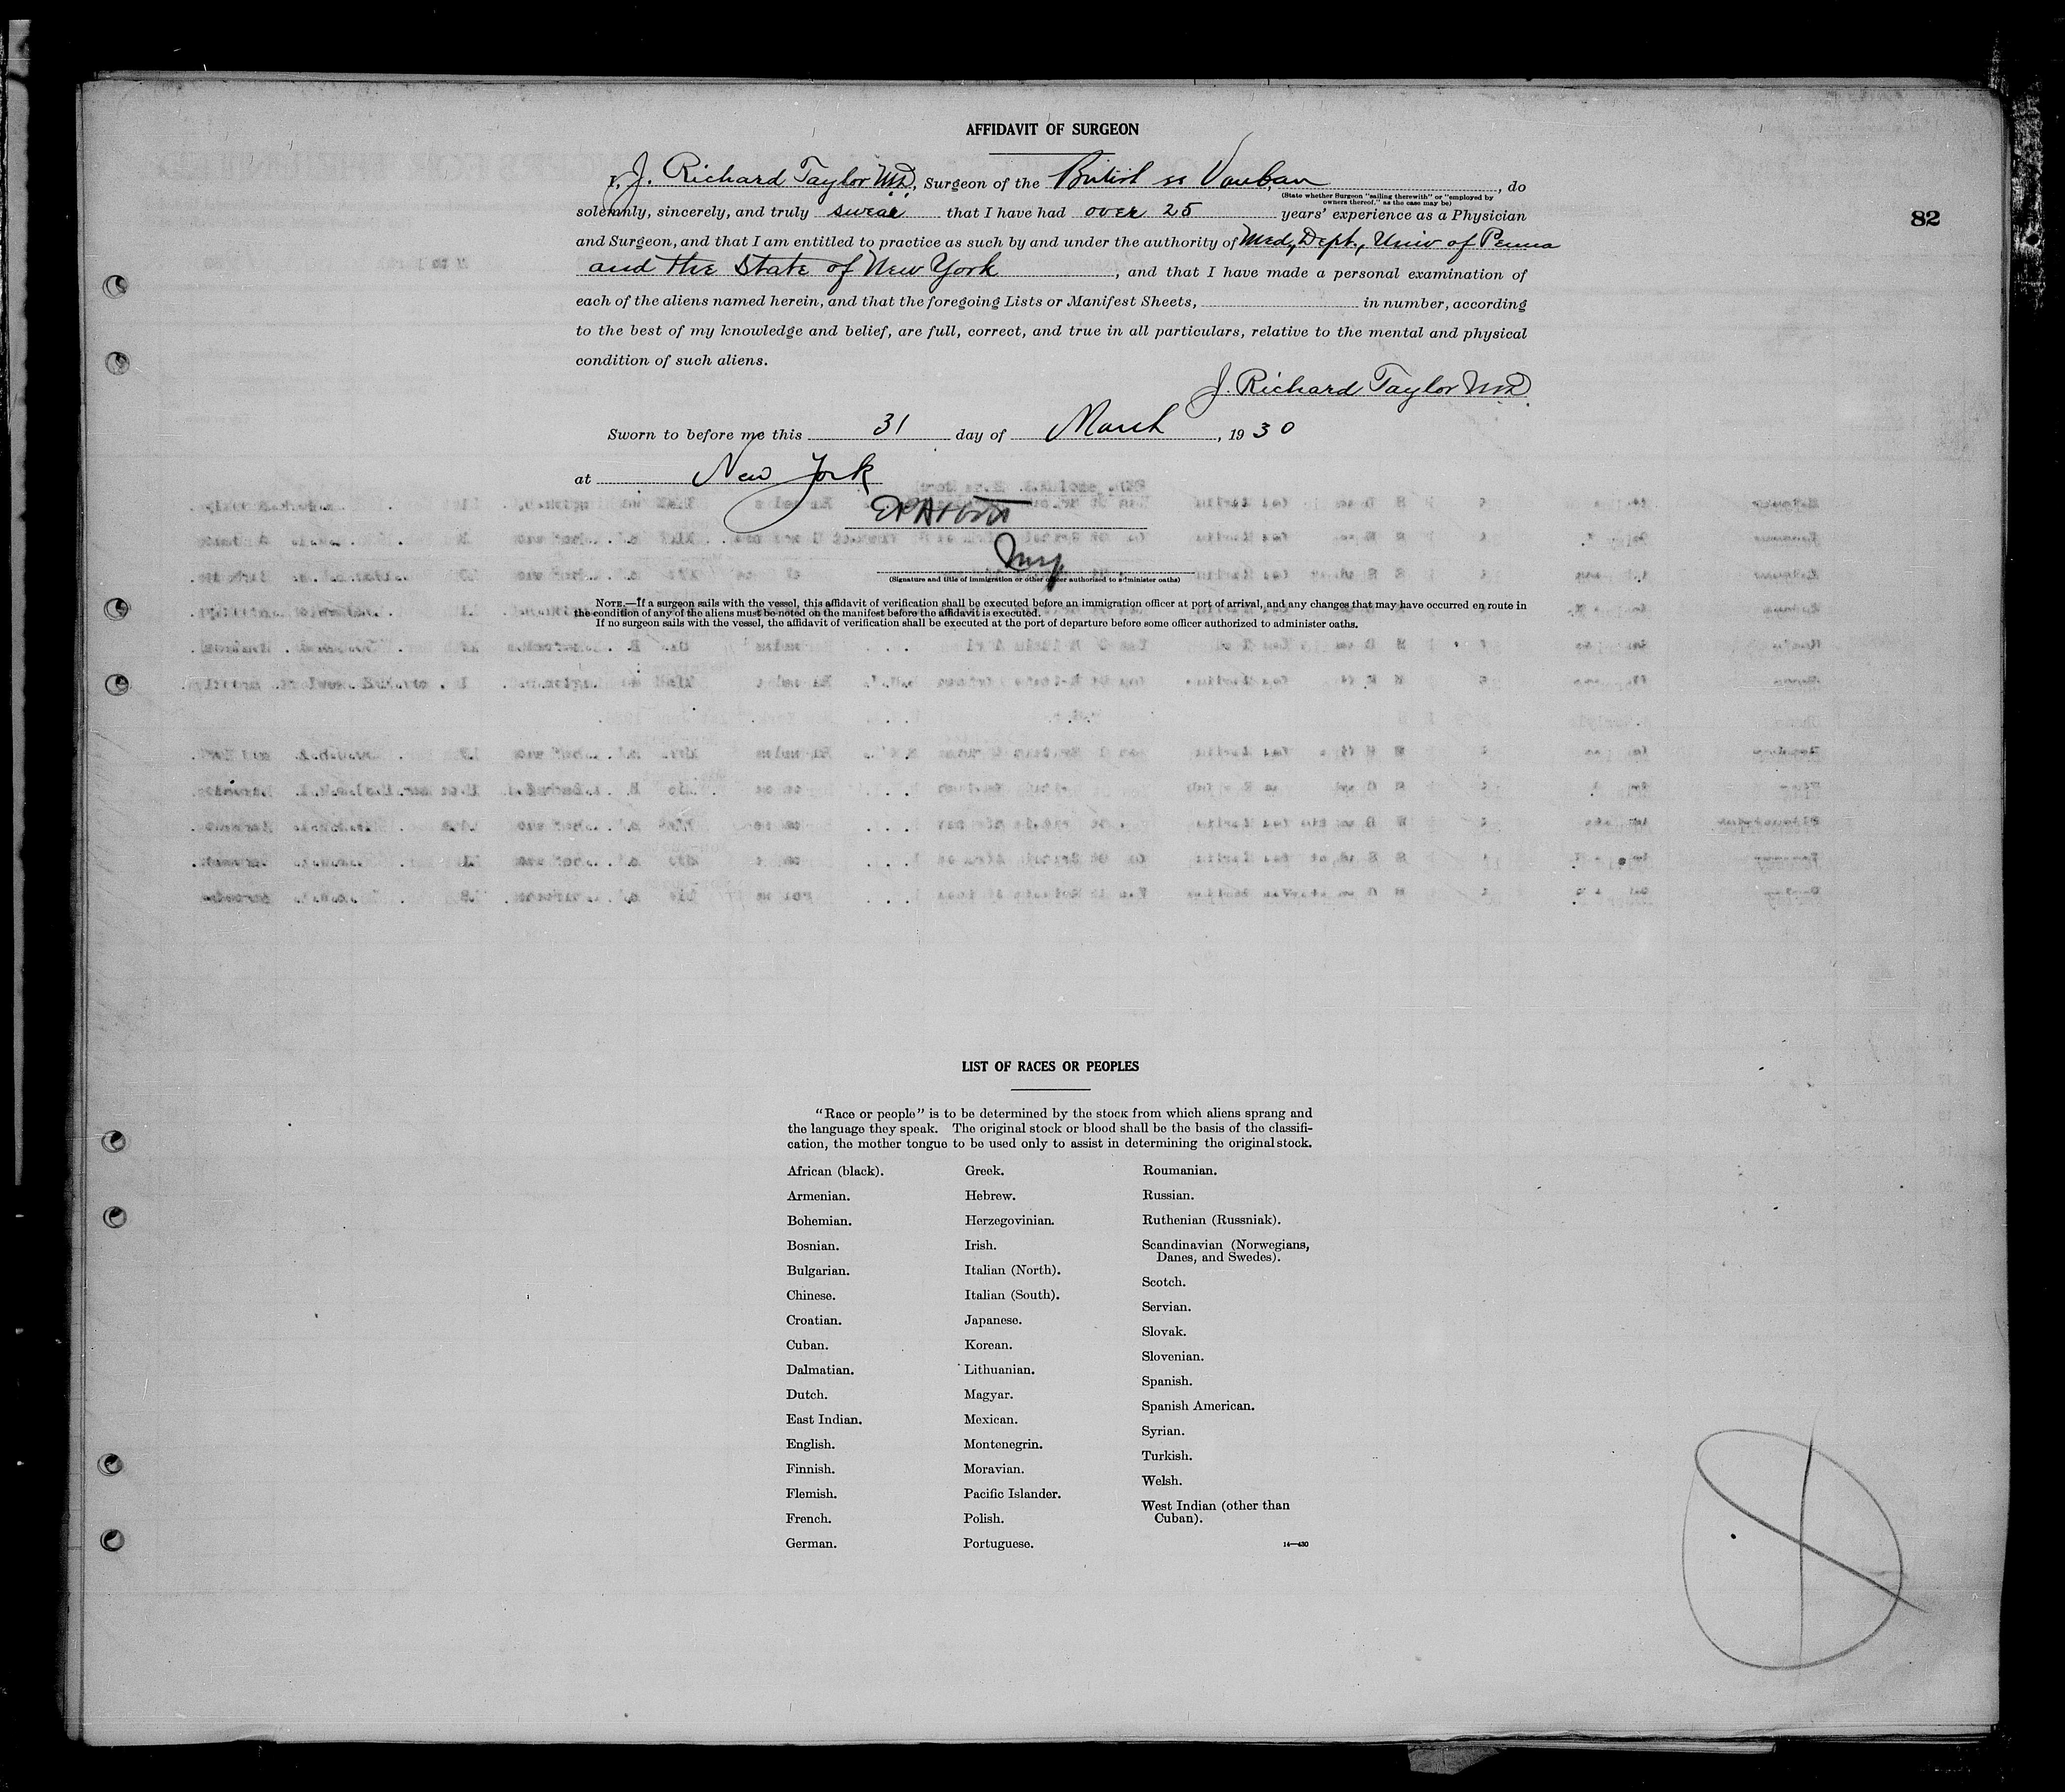 AFFIDAVIT OF SURGEON
I, J. Richard Taylor MD., Surgeon of the British ss Vauban, do
(State whether Surgeon "sailing therewith" or "employed by
owners thereof," as the case may be)
solemnly, sincerely, and truly swear that I have had over 25 years' experience as a Physician
82
and Surgeon, and that I am entitled to practice as such by and under the authority of Med, Dept., Univ of Penna
and the State of New York, and that I have made a personal examination of
each of the aliens named herein, and that the foregoing Lists or Manifest Sheets, in number, according
to the best of my knowledge and belief, are full, correct, and true in all particulars, relative to the mental and physical
condition of such aliens.
J. Richard Taylor MD.
Sworn to before me this 31 day of March, 1930
at New York
(Signature and title of immigration or other officer authorized to administer oaths)
NOTE.—If a surgeon sails with the vessel, this affidavit of verification shall be executed before an immigration officer at port of arrival, and any changes that may have occurred en route in
the condition of any of the aliens must be noted on the manifest before the affidavit is executed.
If no surgeon sails with the vessel, the affidavit of verification shall be executed at the port of departure before some officer authorized to administer oaths.
LIST OF RACES OR PEOPLES
"Race or people" is to be determined by the stock from which aliens sprang and
the language they speak. The original stock or blood shall be the basis of the classifi-
cation, the mother tongue to be used only to assist in determining the original stock.
African (black).
Armenian.
Bohemian.
Bosnian.
Bulgarian.
Chinese.
Croatian.
Cuban.
Dalmatian.
Dutch.
East Indian.
English.
Finnish.
Flemish.
French.
German.
Greek.
Hebrew.
Herzegovinian.
Irish.
Italian (North).
Italian (South).
Japanese.
Korean.
Lithuanian.
Magyar.
Mexican.
Montenegrin.
Moravian.
Pacific Islander.
Polish.
Portuguese.
Roumanian.
Russian.
Ruthenian (Russniak).
Scandinavian (Norwegians,
Danes, and Swedes).
Scotch.
Servian.
Slovak.
Slovenian.
Spanish.
Spanish American.
Syrian.
Turkish.
Welsh.
West Indian (other than
Cuban).
14—430